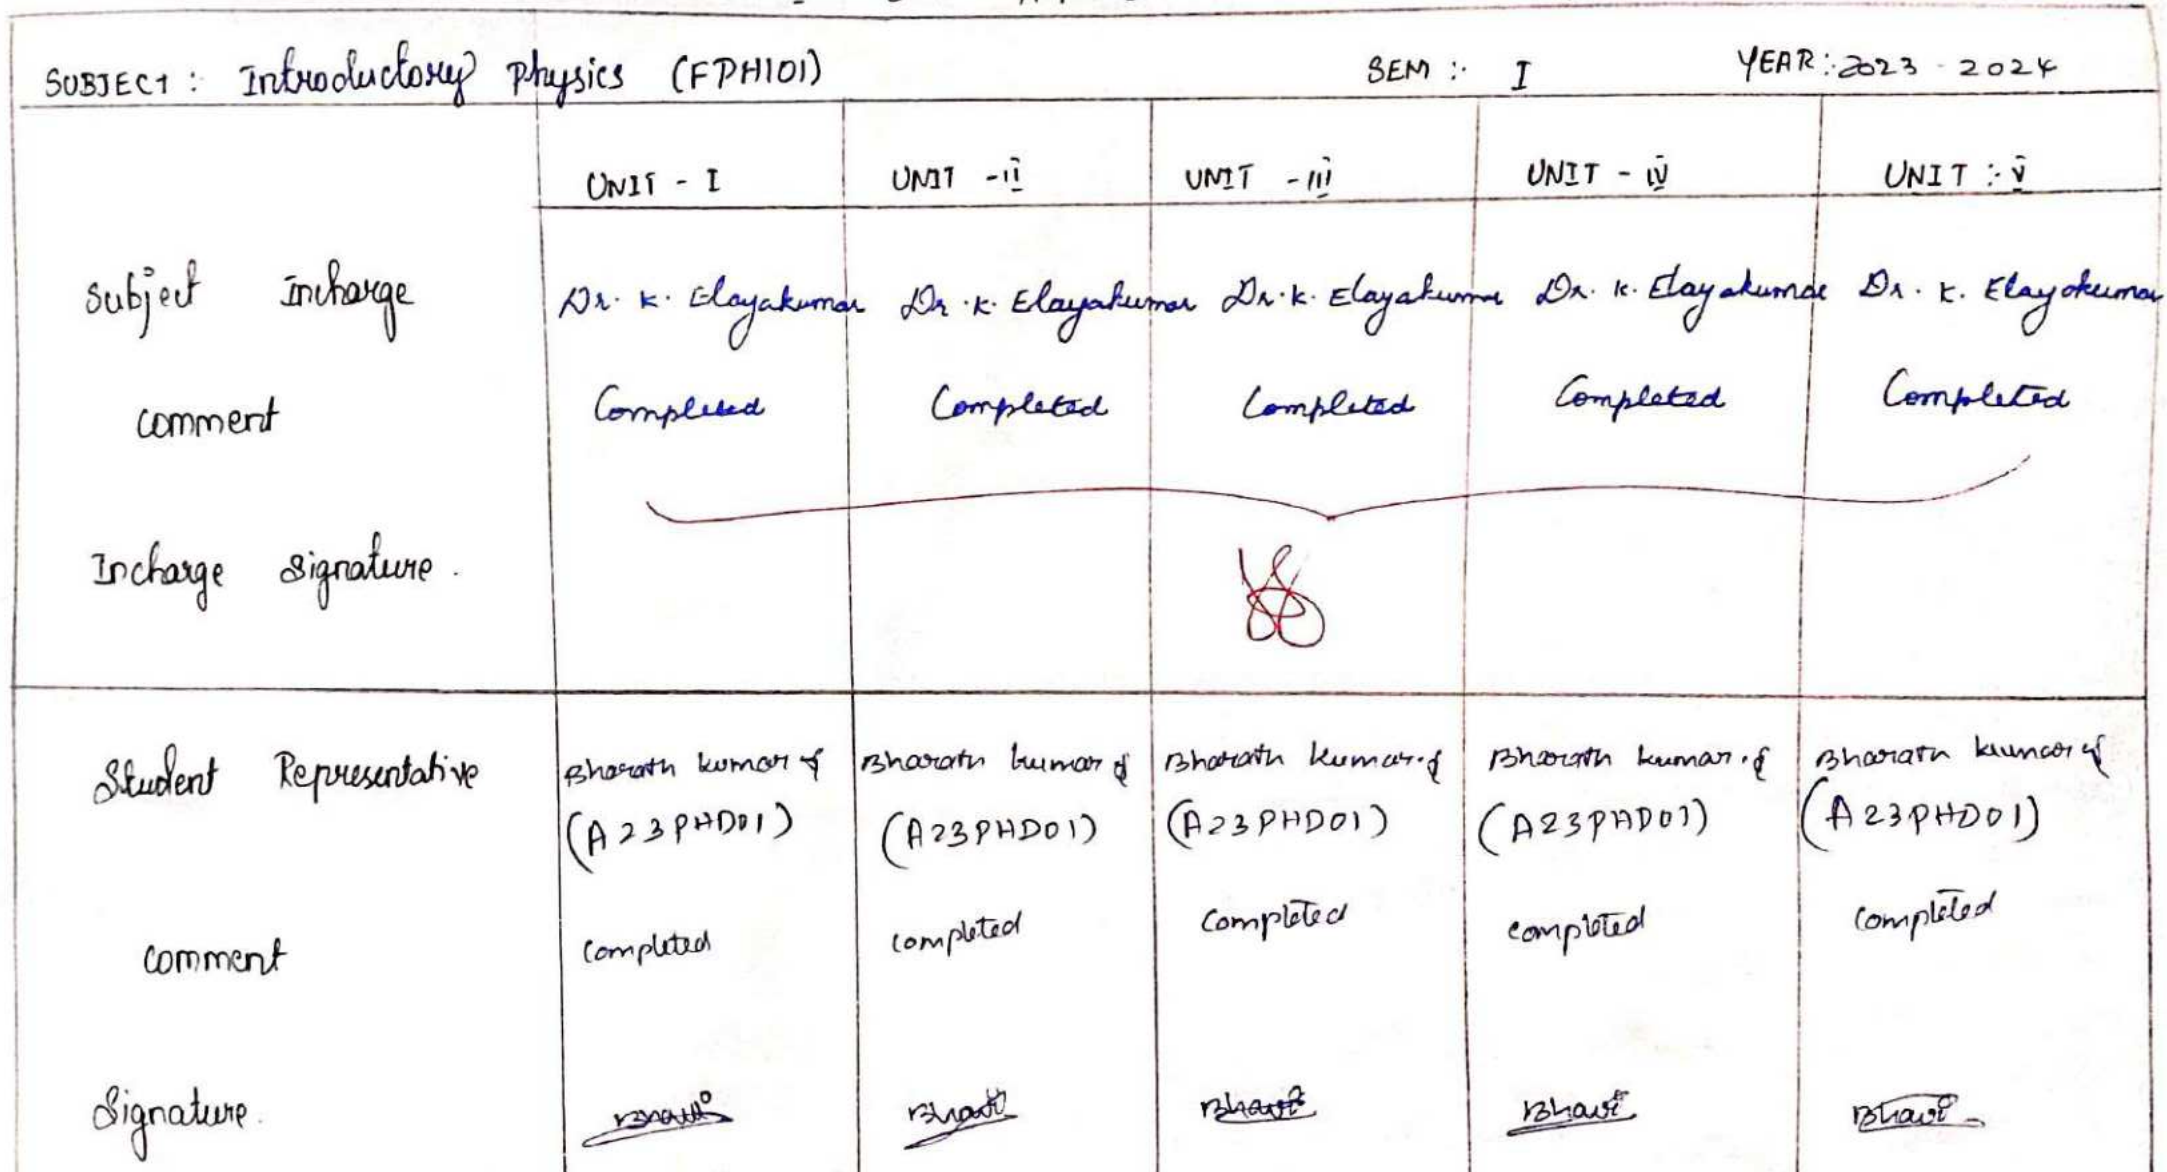 SUBJECT : Introductory Physics (FPH101) SEM :- I YEAR :- 2023 - 2024
UNIT - I UNIT - II UNIT - III UNIT - IV UNIT :- V
Subject Incharge Dr. K. Elayakumar Dr. K. Elayakumar Dr. K. Elayakumar Dr. K. Elayakumar Dr. K. Elayakumar
comment Completed Completed Completed Completed Completed
Incharge Signature.
Student Representative Bharath kumar Bharath kumar Bharath kumar Bharath kumar Bharath kumar
(A23PHD01) (A23PHD01) (A23PHD01) (A23PHD01) (A23PHD01)
comment completed completed completed completed completed
Signature.